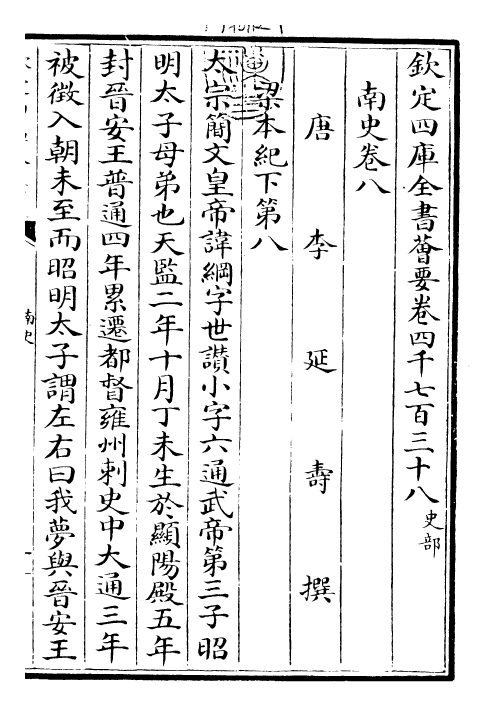 欽定四庫全書薈要卷四千七百三十八 史部
南史卷八
唐 李 延 壽 撰
梁本紀下第八
太宗簡文皇帝諱綱字世讚小字六通武帝第三子昭
明太子母弟也天監二年十月丁未生於顯陽殿五年
封晉安王普通四年累遷都督雍州刺史中大通三年
被徵入朝未至而昭明太子謂左右曰我夢與晉安王
南史